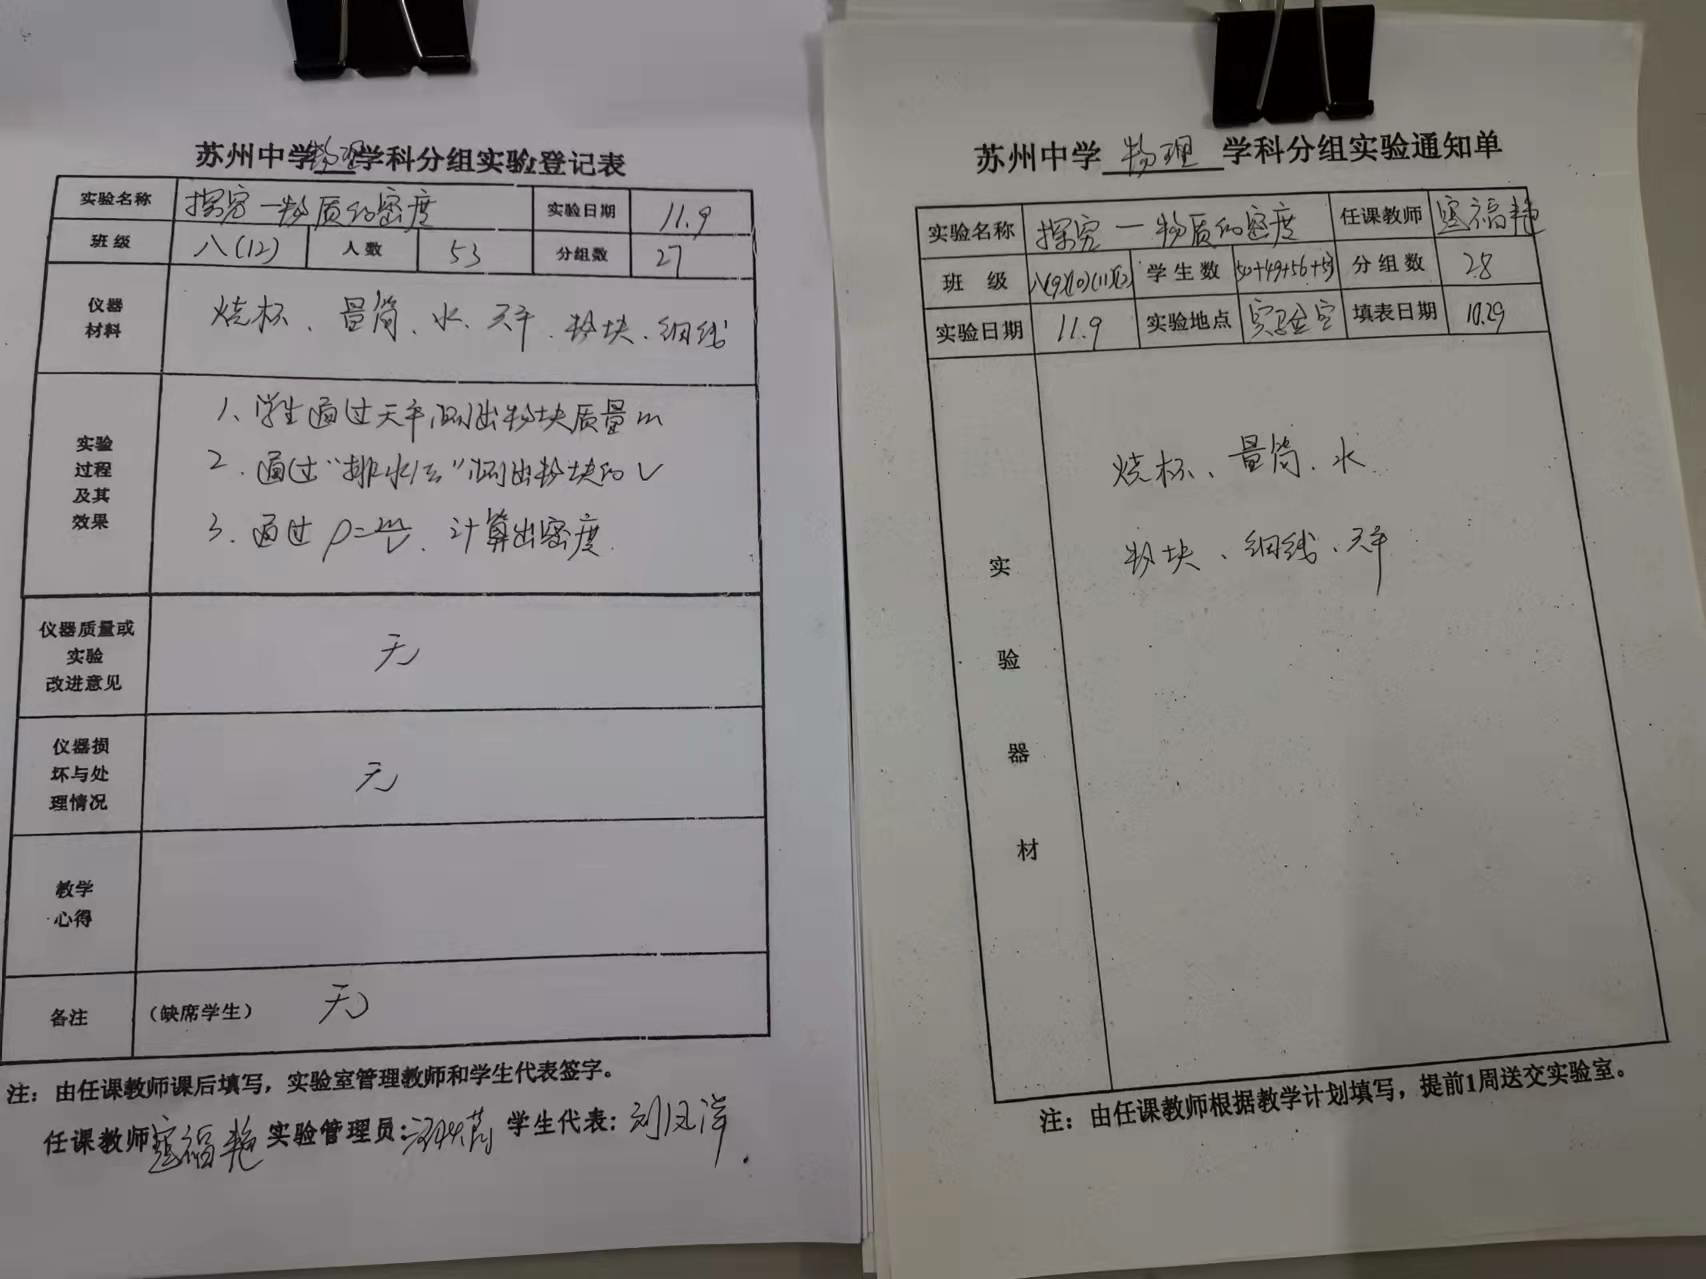 苏州中学物理学科分组实验登记表
实验名称 探究一物质的密度 实验日期 11.9
班级 八(12) 人数 53 分组数 27
仪器材料 烧杯、量筒、水、天平、物块、细线
实验过程及其效果
1、学生通过天平测出物块质量m
2、通过“排水法”测出物块的V
3、通过ρ=m/V、计算出密度.
仪器质量或实验改进意见 无
仪器损坏与处理情况 无
教学心得
备注 (缺席学生) 无
注：由任课教师课后填写，实验室管理教师和学生代表签字。
任课教师 福艳 实验管理员： 学生代表：刘
苏州中学 物理 学科分组实验通知单
实验名称 探究一物质的密度 任课教师 福艳
班级 八(9)(10)(11)(12) 学生数 50+49+56+53 分组数 28
实验日期 11.9 实验地点 实验室 填表日期 10.29
实验器材
烧杯、量筒、水
物块、细线、天平
注：由任课教师根据教学计划填写，提前1周送交实验室。